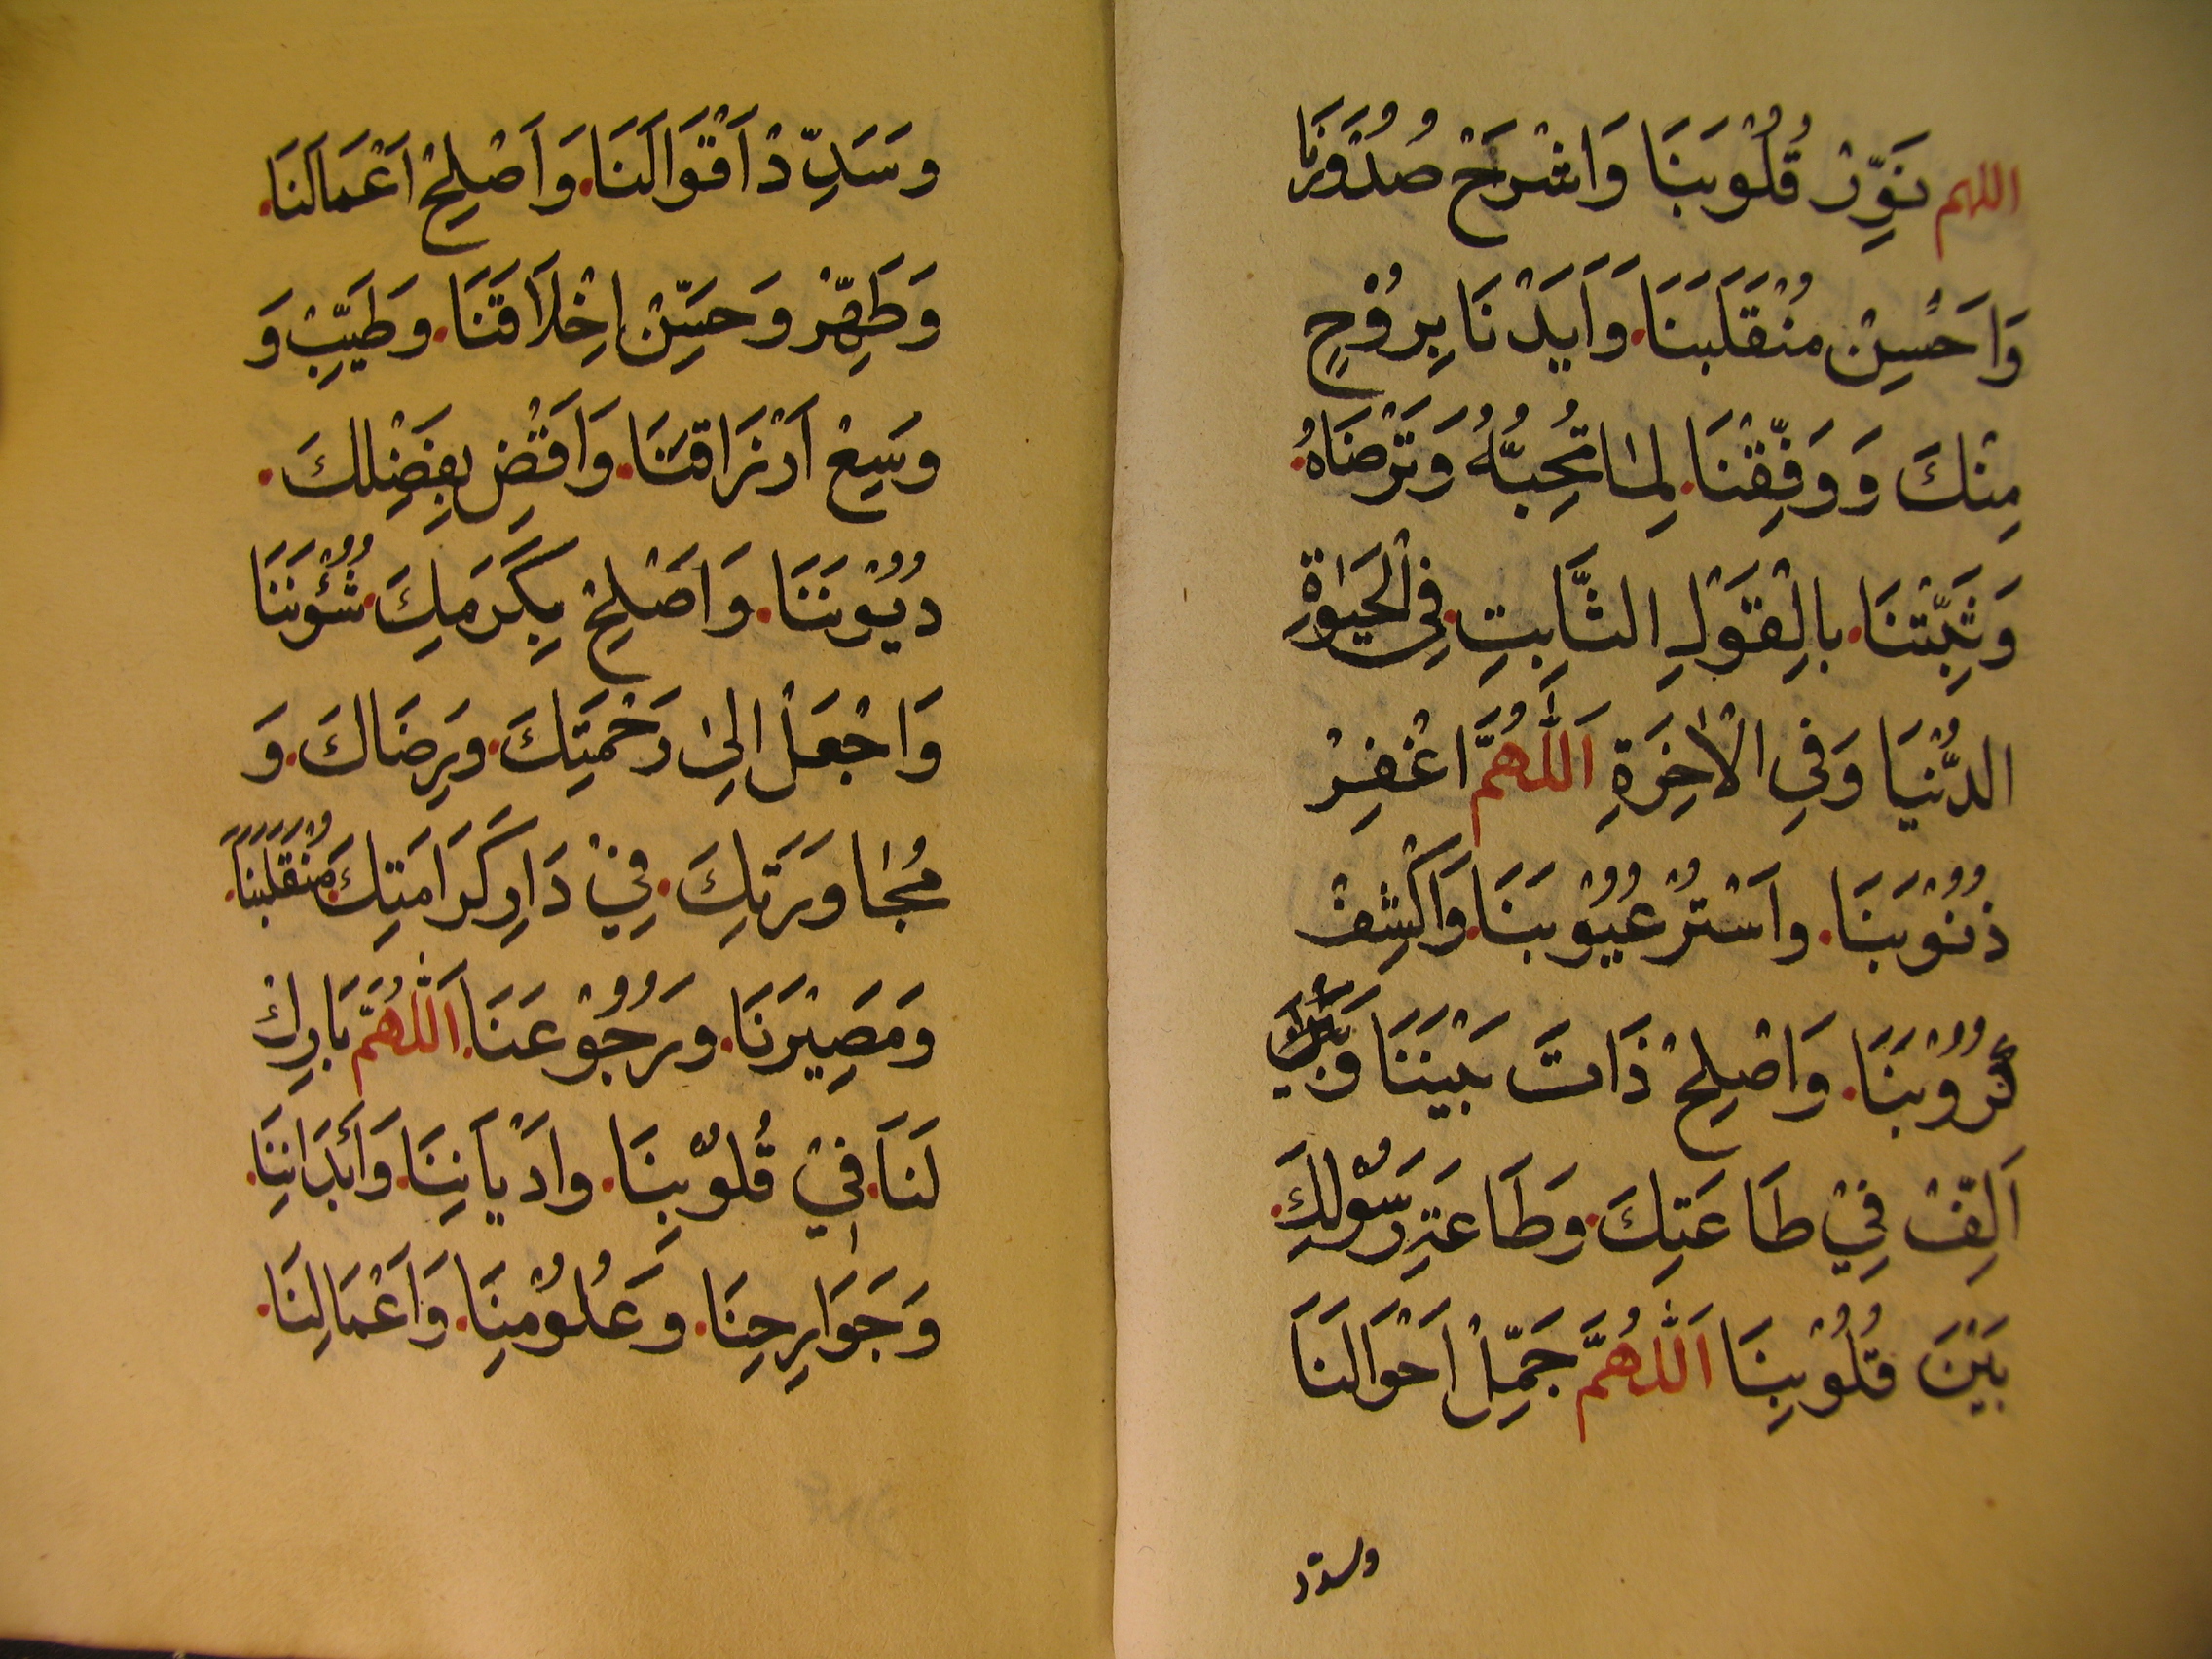 اللهم نَوِّرْ قُلُوْبَنَا وَاشْرَحْ صُدُوْرَنَا
وَاَحْسِنْ مُنْقَلَبَنَا. وَاَيِّدْنَا بِرُوْحٍ
مِنْكَ وَوَفِّقْنَا. لِمَا تُحِبُّهُ وَتَرْضَاهُ.
وَثَبِّتْنَا. بِالْقَوْلِ الثَّابِتِ. فِي الْحَيٰوةِ
الدُّنْيَا وَفِي الْاٰخِرَةِ اَللّٰهُمَّ اغْفِرْ
ذُنُوْبَنَا. وَاسْتُرْ عُيُوْبَنَا. وَاكْشِفْ
كُرُوْبَنَا. وَاَصْلِحْ ذَاتَ بَيْنَنَا وَ
اَلِّفْ فِيْ طَاعَتِكَ. وَطَاعَةِ رَسُوْلِكَ.
بَيْنَ قُلُوْبِنَا اَللّٰهُمَّ جَمِّلْ اَحْوَالَنَا
وسدد
وَسَدِّدْ اَقْوَالَنَا. وَاَصْلِحْ اَعْمَالَنَا.
وَطَهِّرْ وَحَسِّنْ اِخْلَاقَنَا. وَطَيِّبْ وَ
وَسِعْ اَرْزَاقَنَا. وَاَقْضِ بِفَضْلِكَ.
دُيُوْنَنَا. وَاَصْلِحْ بِكَرَمِكَ. شُؤُنَنَا
وَاجْعَلْ اِلىٰ رَحْمَتِكَ. وَرِضَاكَ. وَ
مُجَاوَرَتِكَ. فِيْ دَارِ كَرَامَتِكَ. مُنْقَلَبَنَا.
وَمَصِيْرَنَا. وَرُجُوْعَنَا. اَللّٰهُمَّ بَارِكْ
لَنَا. فِيْ قُلُوْبِنَا. وَاَدْيَانِنَا. وَاَبْدَانِنَا.
وَجَوَارِحِنَا. وَعُلُوْمِنَا. وَاَعْمَالِنَا.